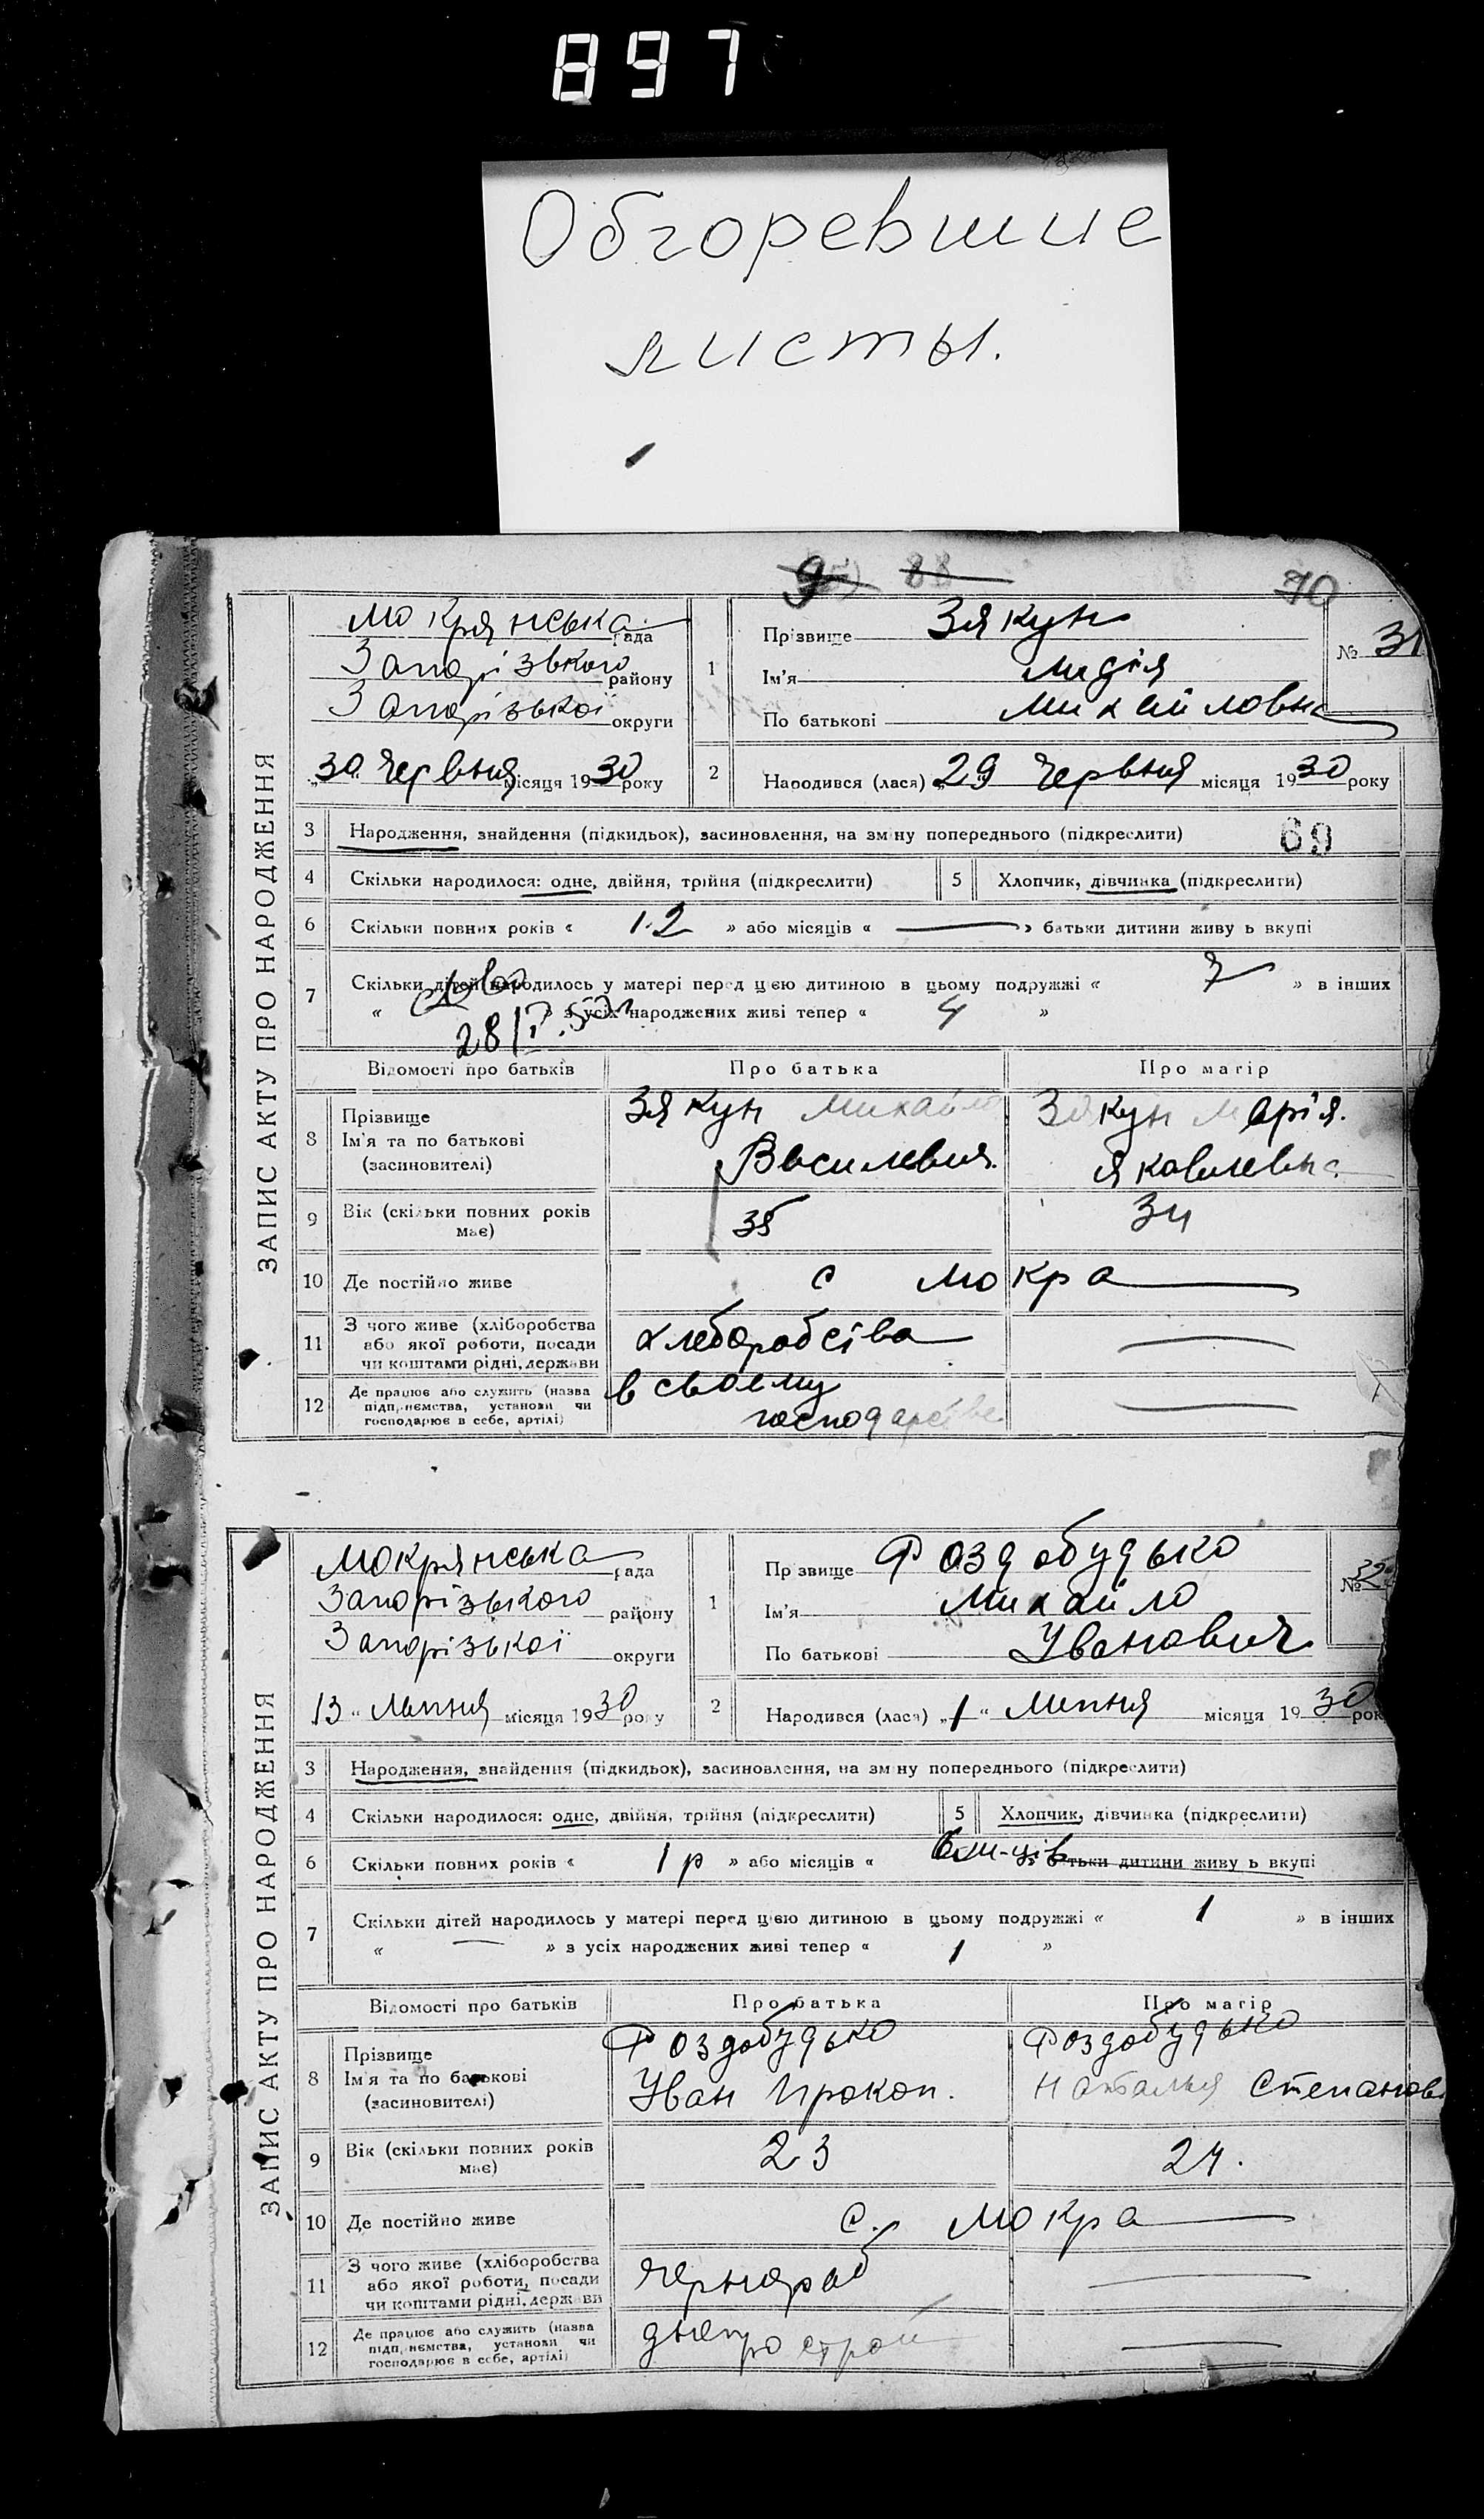 897
Обгоревшие
листы.
88
70
ЗАПИС АКТУ ПРО НАРОДЖЕННЯ
Мокрянська рада
Запорізького району
Запорізької округи
„30 Червня місяця 1930 року
1
Прізвище Зякун
Ім'я Лидія
По батькові Михайловна
№ 31
2
Народився (лася) „29 Червня місяця 1930 року
3 Народження, знайдення (підкидьок), засиновлення, на зміну попереднього (підкреслити)
69
4 Скільки народилося: одне, двійня, трійня (підкреслити)
5 Хлопчик, дівчинка (підкреслити)
6 Скільки повних років « 12 » або місяців « — » батьки дитини живуть вкупі
7 Скільки дітей народилось у матері перед цією дитиною в цьому подружжі « 7 » в інших
« » з усіх народжених живі тепер « 4 »
Відомості про батьків Про батька Про матір
8 Прізвище
Ім'я та по батькові
(засиновителі)
Зякун Михайло
Василевич
Зякун Марія
Яковлевна
9 Вік (скільки повних років має) 35 34
10 Де постійно живе с Мокра
11 З чого живе (хліборобства
або якої роботи, посади
чи коштами рідні, держави
хлеборобства
12 Де працює або служить (назва
підприємства, установи чи
господарює в себе, артілі)
в своему
господарстве
ЗАПИС АКТУ ПРО НАРОДЖЕННЯ
Мокрянська рада
Запорізького району
Запорізької округи
13 “ Липня місяця 1930 року
1
Прізвище Роздобудько
Ім'я Михайло
По батькові Иванович
№ 32
2
Народився (лася) „1 “ Липня місяця 1930 рок
3 Народження, знайдення (підкидьок), засиновлення, на зміну попереднього (підкреслити)
4 Скільки народилося: одне, двійня, трійня (підкреслити)
5 Хлопчик, дівчинка (підкреслити)
6 Скільки повних років « 1 р » або місяців « 6 м-ців батьки дитини живуть вкупі
7 Скільки дітей народилось у матері перед цією дитиною в цьому подружжі « 1 » в інших
« — » з усіх народжених живі тепер « 1 »
Відомості про батьків Про батька Про матір
8 Прізвище
Ім'я та по батькові
(засиновителі)
Роздобудько
Иван Прокоп.
Роздобудько
Наталья Степановн
9 Вік (скільки повних років має) 23 24.
10 Де постійно живе с. Мокра
11 З чого живе (хліборобства
або якої роботи, посади
чи коштами рідні, держави
чернораб
12 Де працює або служить (назва
підприємства, установи чи
господарює в себе, артілі)
днепрострой